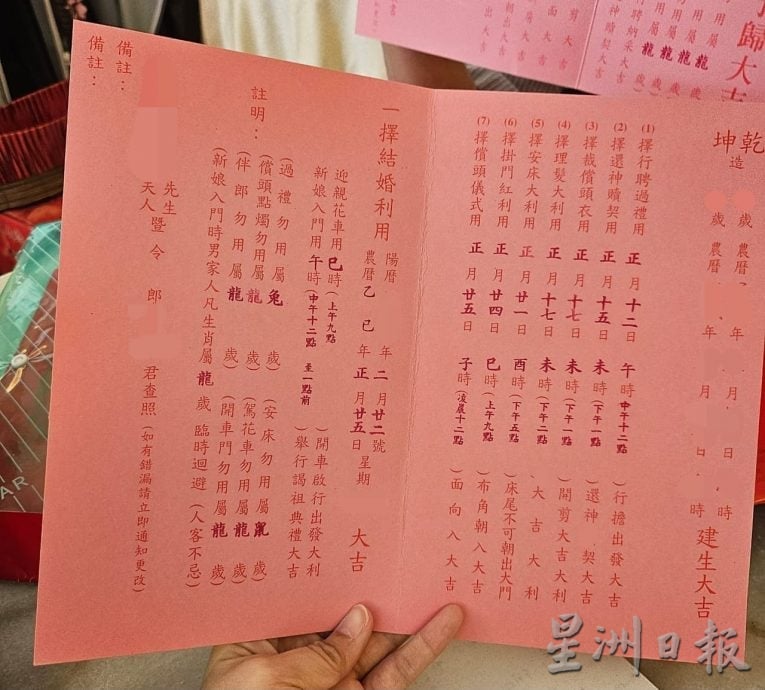 乾 歲 農曆 年 月 日 時
坤造 歲 農曆 年 月 日 時 建生大吉
(1) 擇行聘過禮用 正月十二日 午時 中午十二點 ︶行擔出發大吉
(2) 擇還神贖契用 正月十五日 未時(下午一點 ︶還神 契大吉
(3) 擇裁償頭衣用 正月十七日 未時(下午一點 ︶開剪大吉大利
(4) 擇理髮大利用 正月十七日 未時(下午二點 ︶大吉大利
(5) 擇安床大利用 正月廿一日 酉時(下午五點 ︶床尾不可朝出大門
(6) 擇掛門紅利用 正月廿四日 巳時(上午九點 ︶布角朝入大吉
(7) 擇償頭儀式用 正月廿五日 子時(凌晨十二點 ︶面向入大吉
一擇結婚利用 陽曆 年二月廿二號
農曆乙巳年正月廿五日 星期 大吉
迎親花車用巳時(上午九點 ︶開車啟行出發大利
新娘入門用午時(中午十二點 至一點前 ︶舉行謁祖典禮大吉
註明：
(過禮勿用屬兔歲) (安床勿用屬鼠歲)
(償頭點燭勿用屬龍歲) (駕花車勿用屬龍歲)
(伴郎勿用屬龍歲) (開車門勿用屬龍歲)
(新娘入門時男家人凡生肖屬龍歲 臨時迴避(人客不忌)
先生
夫人 暨令郎 君查照(如有錯漏請立即通知更改)
備註：
備註：
歸大吉
用屬龍歲
用屬龍歲
用屬龍歲
聘納采大吉
神贖契大吉
剪大吉
出大吉
星洲日報